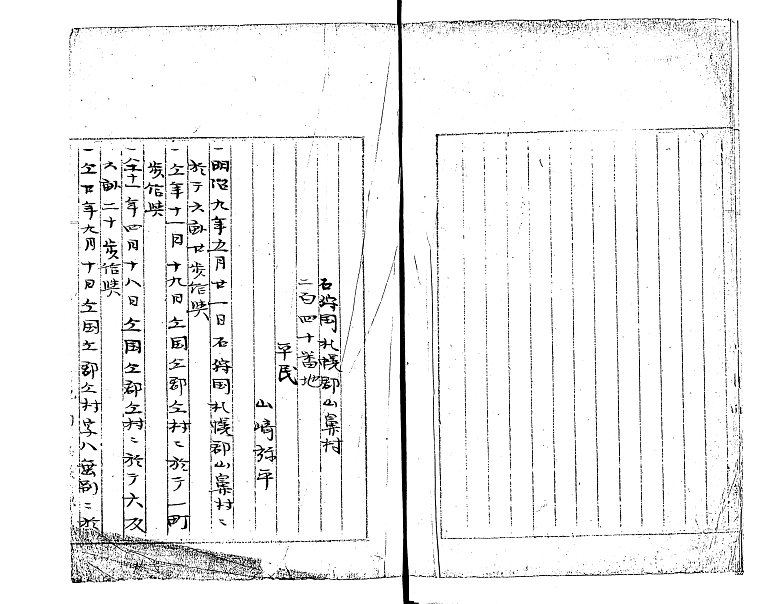 石狩国札幌郡山鼻村
二百四十番地
平民
山崎弥平
一明治九年五月廿一日石狩国札幌郡山鼻村ニ
於テ六畝廿歩給与
一仝年十一月十九日仝国仝郡仝村ニ於テ一町
歩給与
一仝十一年四月十八日仝国仝郡仝村ニ於テ六反
六畝二十歩給与
一仝廿年九月十日仝国仝郡仝村字八垂別ニ於